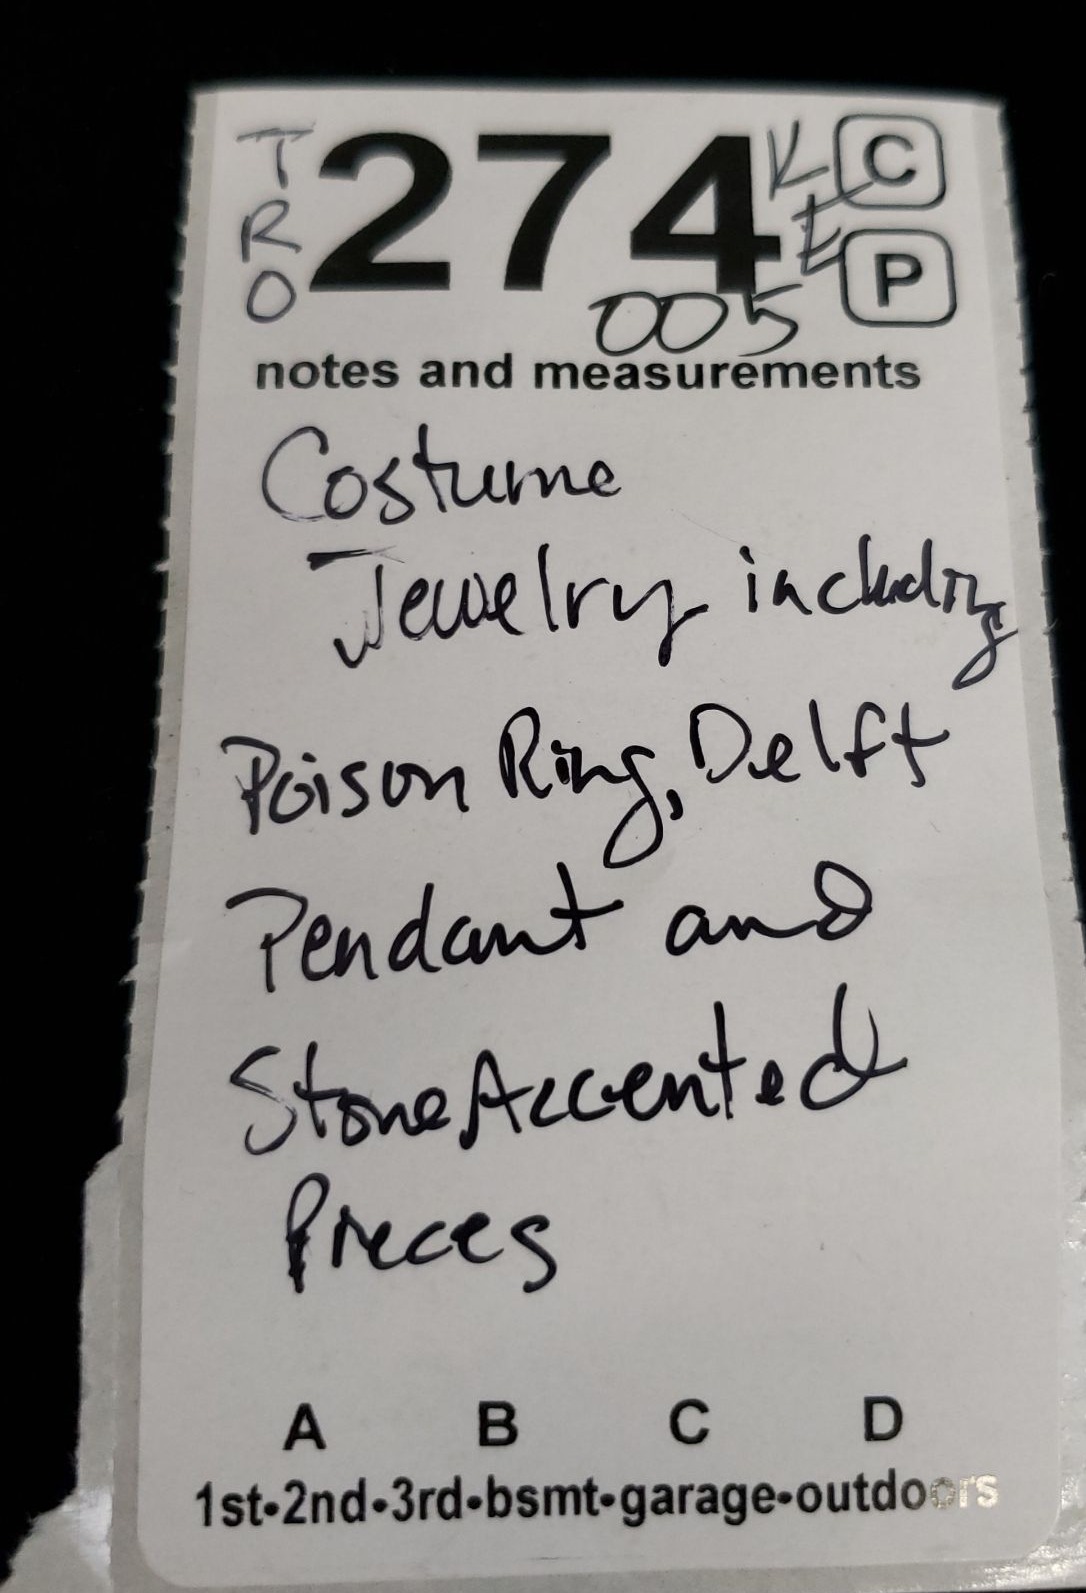 TRO 274 KE C
P
005
notes and measurements
Costume
Jewelry including
Poison Ring, Delft
Pendant and
Stone Accented
Pieces
A B C D
1st•2nd•3rd•bsmt•garage•outdoors